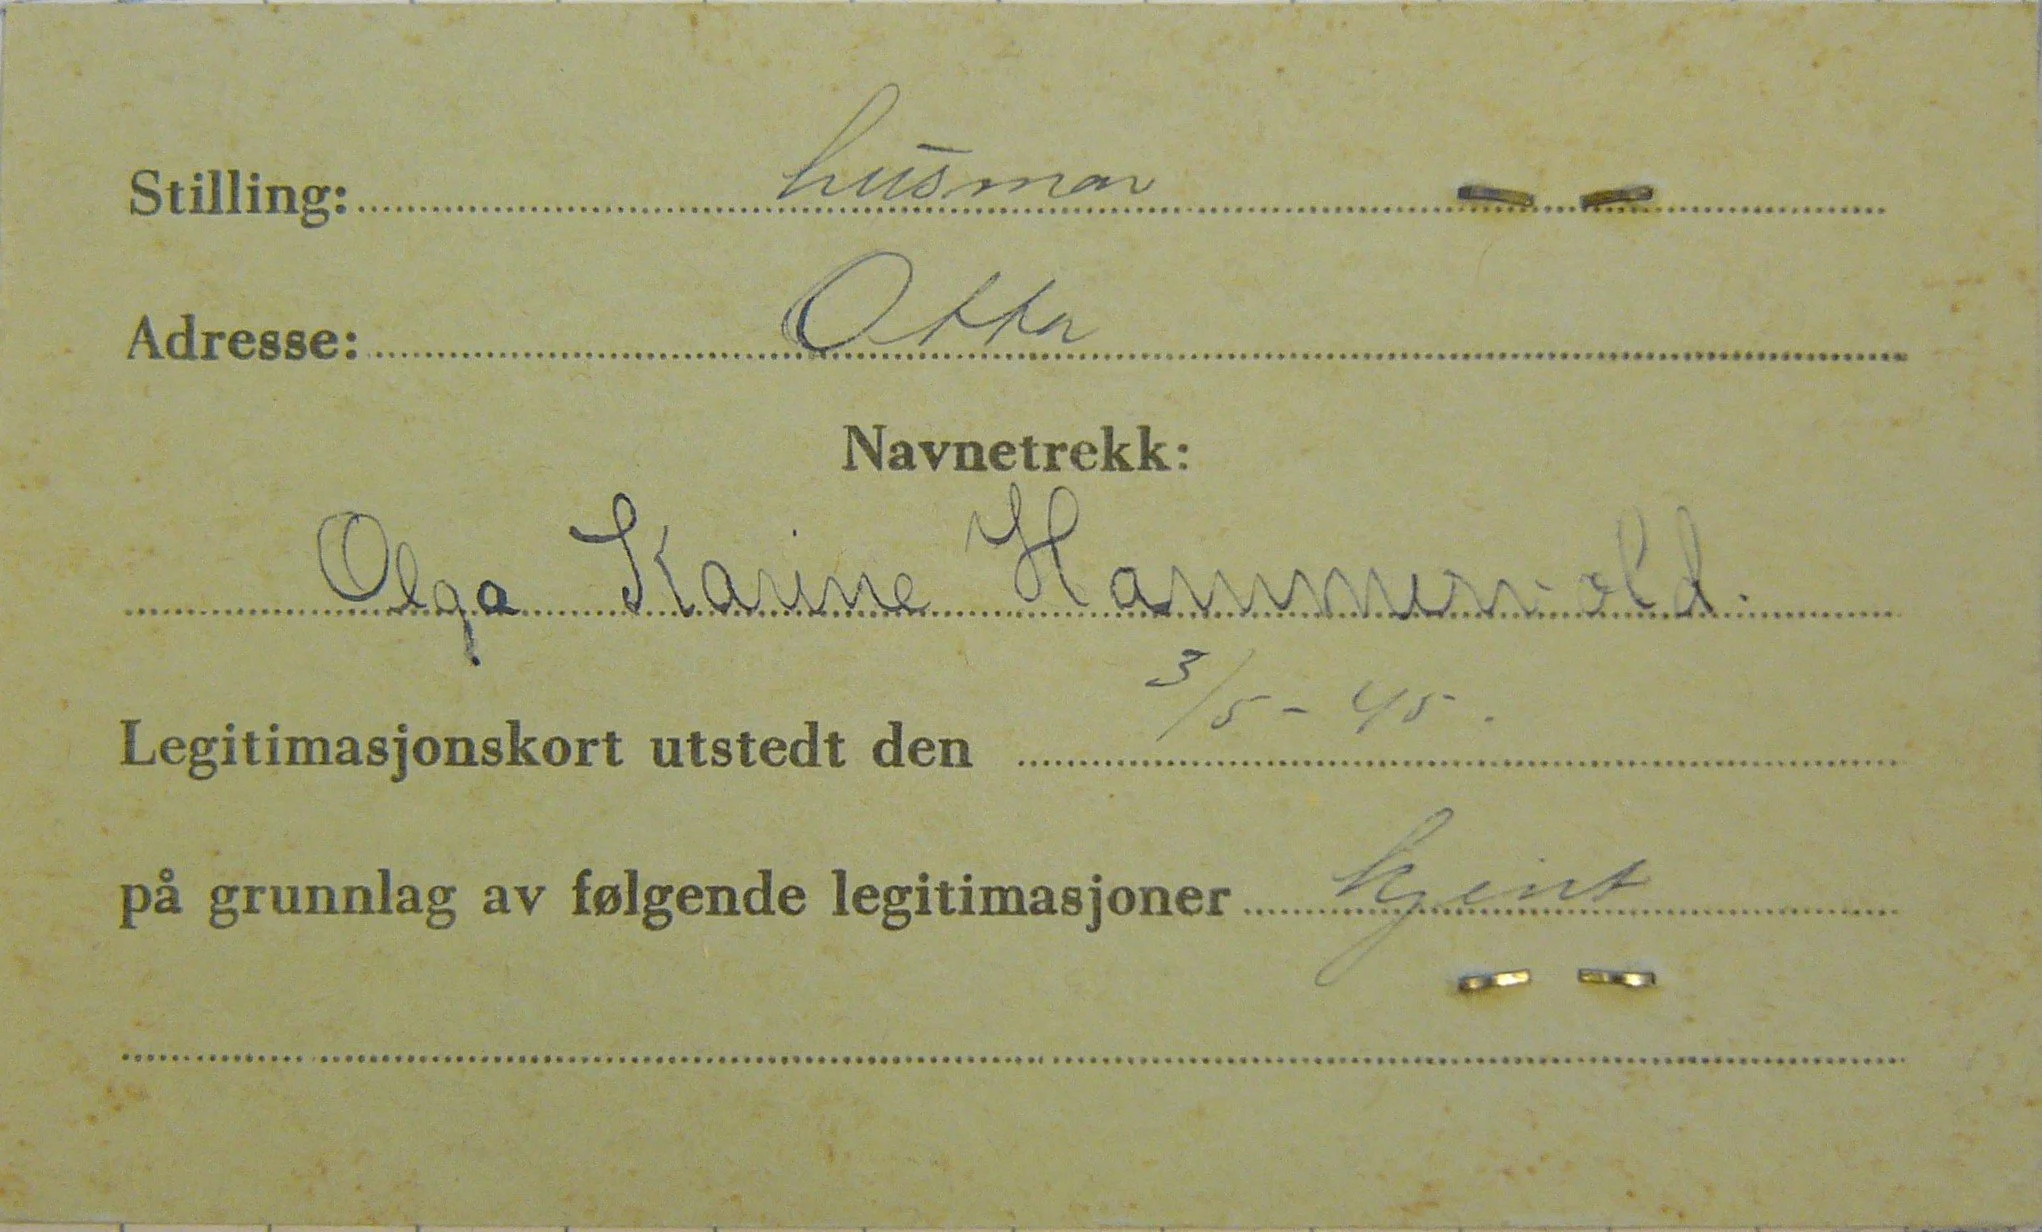 Stilling: husmor
Adresse: Otta
Navnetrekk:
Olga Karine Hammervold.
Legitimasjonskort utstedt den 3/5 - 45.
på grunnlag av følgende legitimasjoner kjent